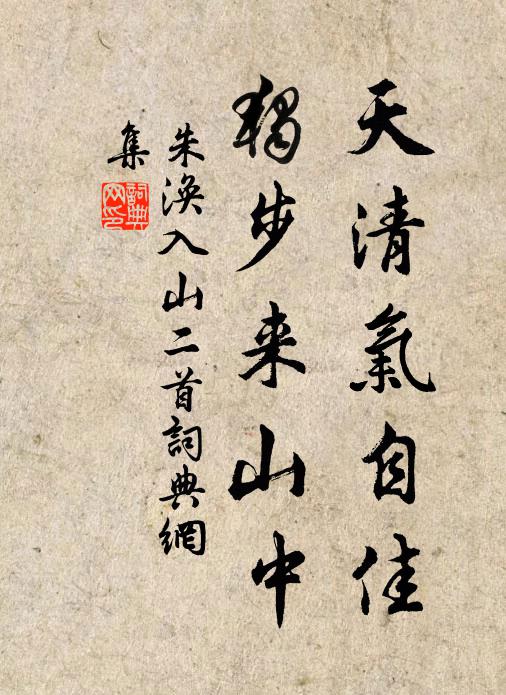 天清氣自佳
獨步来山中
朱渙入山二首詞典網
集
詞典網印